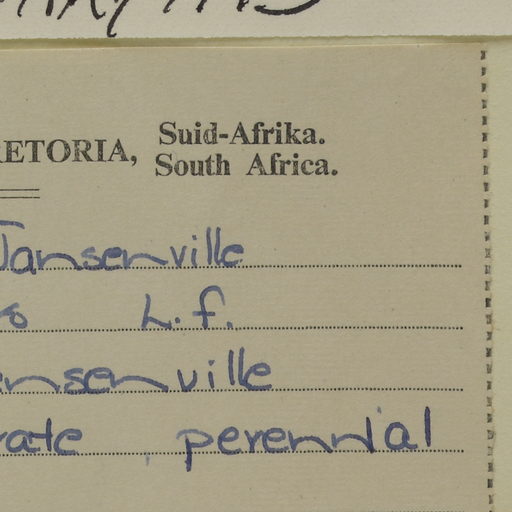 RETORIA, Suid-Afrika.
South Africa.
Jansenville
L.f.
ensenville
rate, perennial